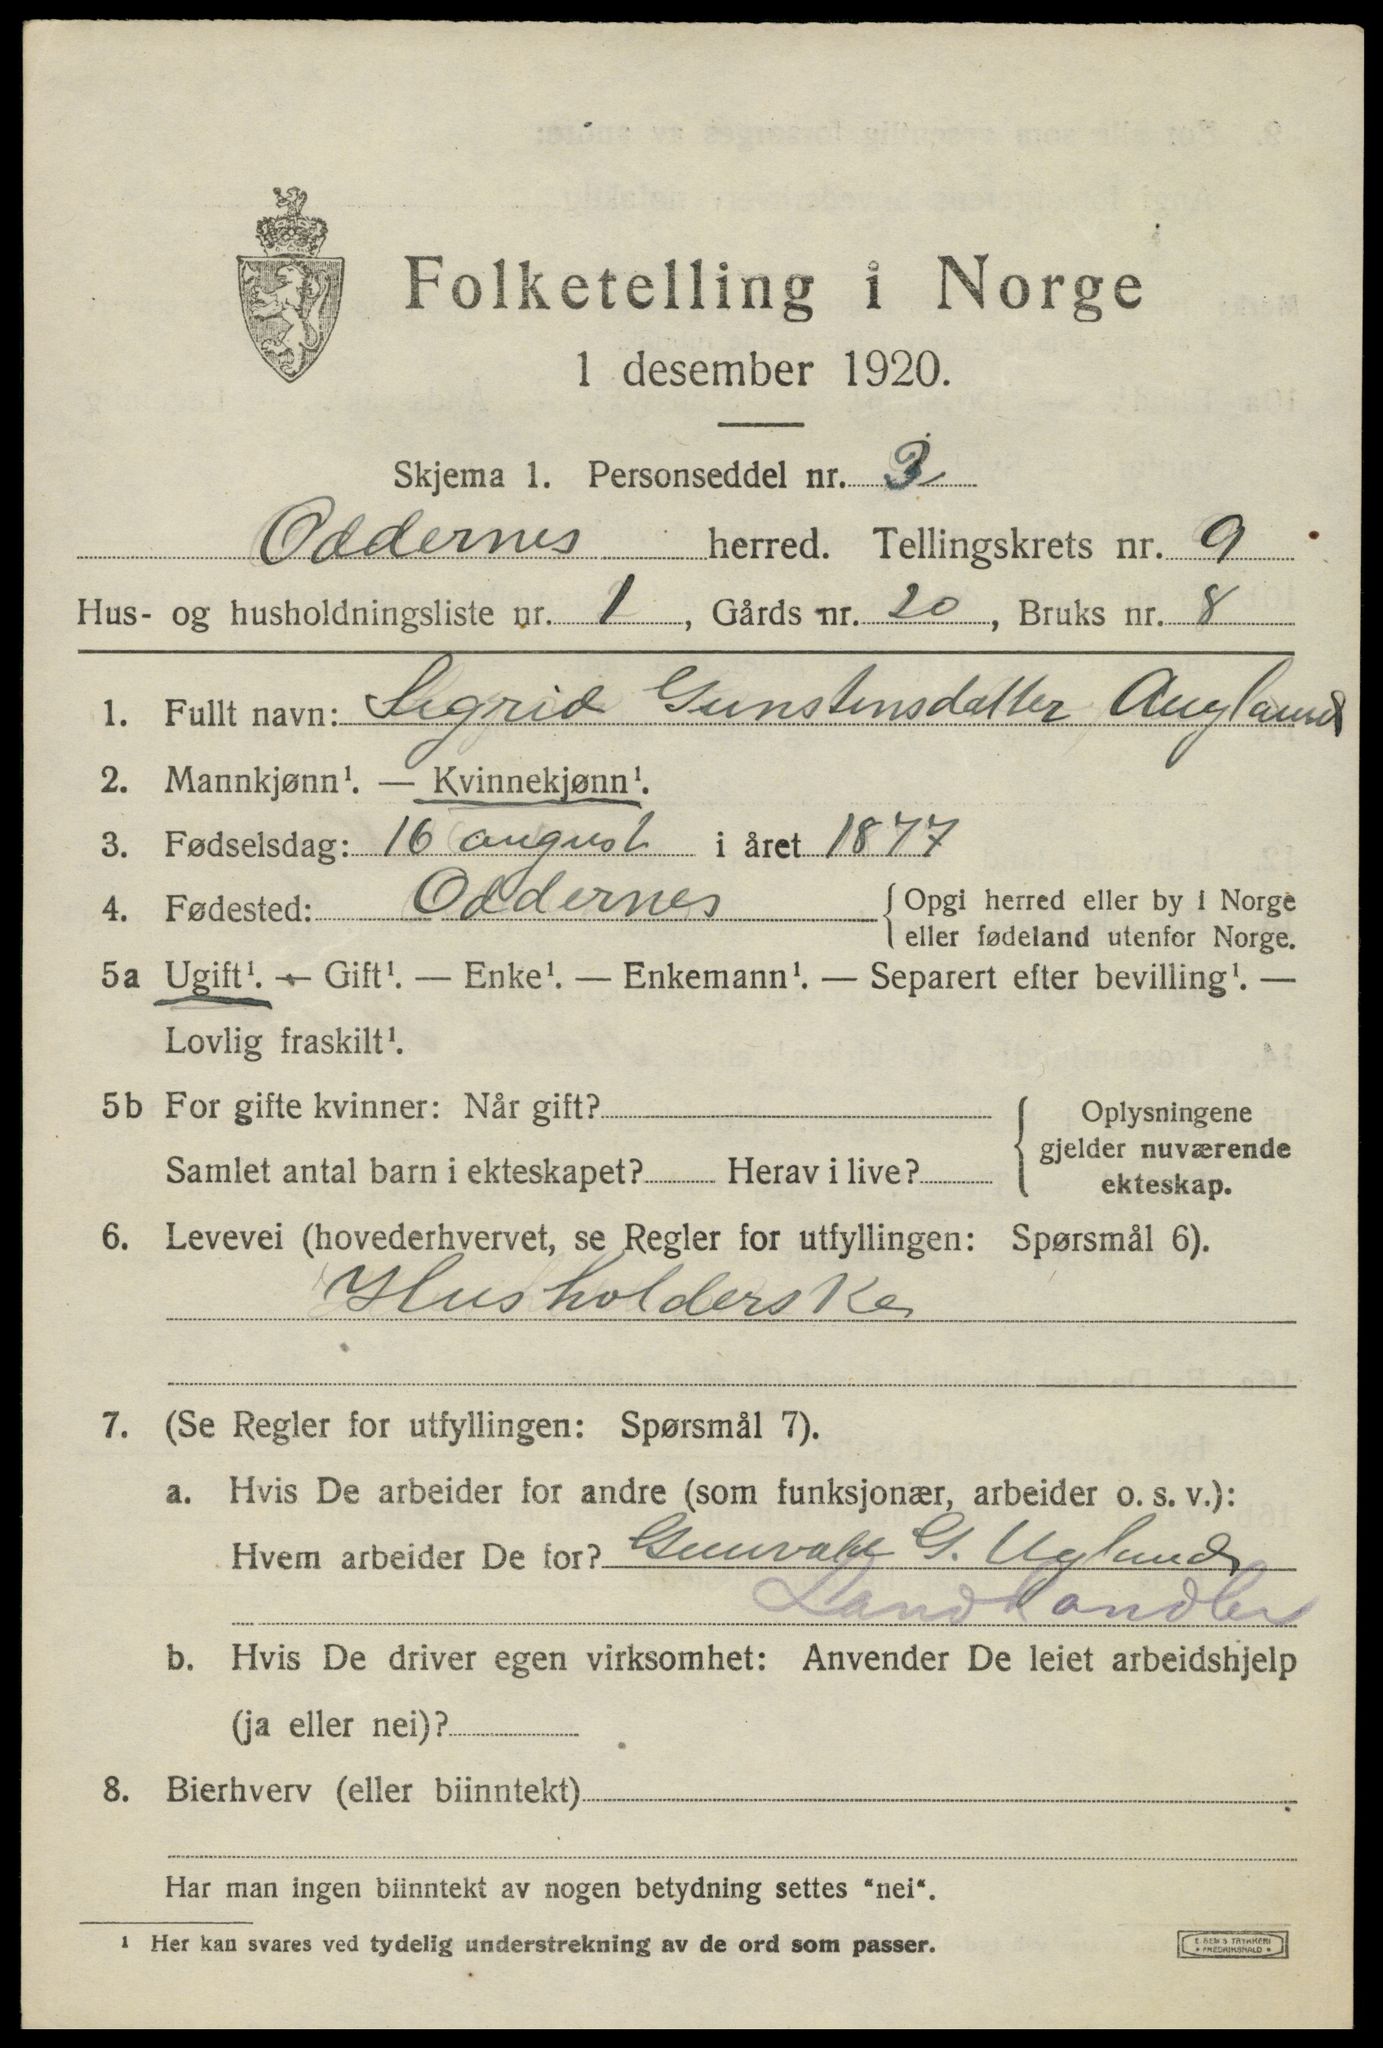 Folketelling i Norge
1 desember 1920.
Skjema 1. Personseddel nr. 3
Oddernes herred. Tellingskrets nr. 9
Hus- og husholdningsliste nr. 1, Gårds nr. 20, Bruks nr. 8
1. Fullt navn: Sigrid Gunstensdatter Augland
2. Mannkjønn¹. — Kvinnekjønn¹.
3. Fødselsdag: 16 august i året 1877
4. Fødested: Oddernes { Opgi herred eller by i Norge
eller fødeland utenfor Norge.
5a Ugift¹. — Gift¹. — Enke¹. — Enkemann¹. — Separert efter bevilling¹. —
Lovlig fraskilt¹.
5b For gifte kvinner: Når gift? { Oplysningene
gjelder nuværende
Samlet antal barn i ekteskapet? Herav i live? ekteskap.
6. Levevei (hovederhvervet, se Regler for utfyllingen: Spørsmål 6).
Husholderske
7. (Se Regler for utfyllingen: Spørsmål 7).
a. Hvis De arbeider for andre (som funksjonær, arbeider o. s. v.):
Hvem arbeider De for? Gunvald G. Ugland
Landhandler
b. Hvis De driver egen virksomhet: Anvender De leiet arbeidshjelp
(ja eller nei)?
8. Bierhverv (eller biinntekt)
Har man ingen biinntekt av nogen betydning settes "nei".
¹ Her kan svares ved tydelig understrekning av de ord som passer.
E. SEM'S TRYKKERI
• FREDRIKSHALD •